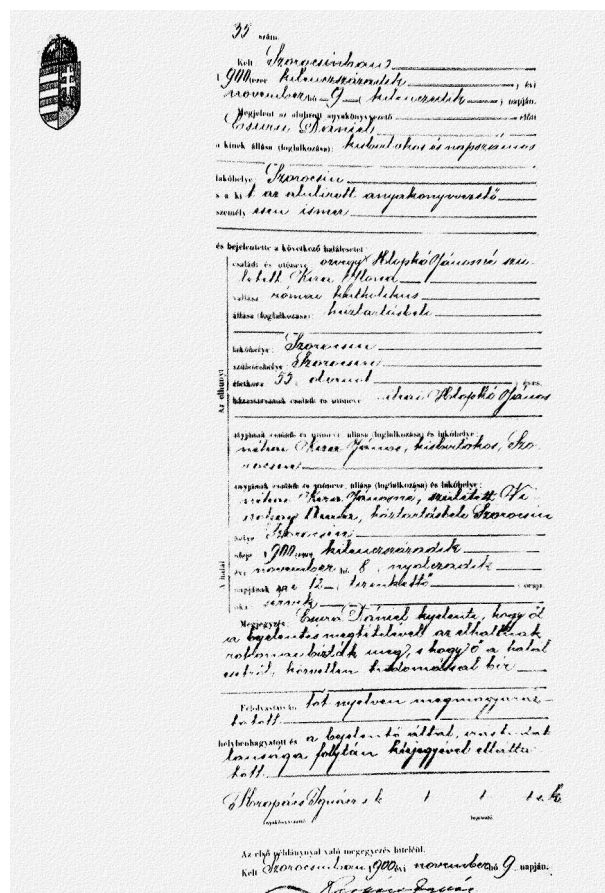 35 szám.
Kelt Szorocsinban
1900 ezer kilenczszázadik évi
november hó 9 (kilenczedik) napján.
Megjelent az alulirott anyakönyvvezető előtt
Csura Dániel
a kinek állása (foglalkozása): kisbirtokos és napszámos
lakóhelye Szorocsin
s a kit az alulirott anyakönyvvezető
személyesen ismer
és bejelentette a következő halálesetet:
családi és utóneve özvegy Hlopkó Jánosné szü-
letett Ilona
vallása római katholikus
állása (foglalkozása): háztartásbeli
lakóhelye: Szorocsin
születéshelye: Szorocsin
életkora 55, éves
Az elhunyt
házastársának családi és utóneve néhai Hlopkó János
atyjának családi és utóneve, állása (foglalkozása) és lakóhelye:
néhai János, kisbirtokos, Szo-
rocsin
anyjának családi és utóneve, állása (foglalkozása) és lakóhelye:
néhai Jánosné, született
háztartásbeli Szorocsin
helye Szorocsin
ideje 1900 ezer kilenczszázadik
évi november hó 8 nyolczadik
napjának 12 (tizenkettő) órája
A halál
oka
Megjegyzés: Csura Dániel kijelenti, hogy őt
a bejelentés megtételével az elhaltnak
rokonai bízták meg, s hogy ő a halál
esetről közvetlen tudomással bír
Felolvastatván, tót nyelven megmagyaráz-
tatott
helybenhagyatott és a bejelentő által, irástudat
lansága folytán kézjegyével ellátta-
tott
Ignácz s k
anyakönyvvezető
bejelentő
Az első példánnyal való megegyezés hiteléül.
Kelt Szorocsinban, 1900 évi november hó 9 napján.